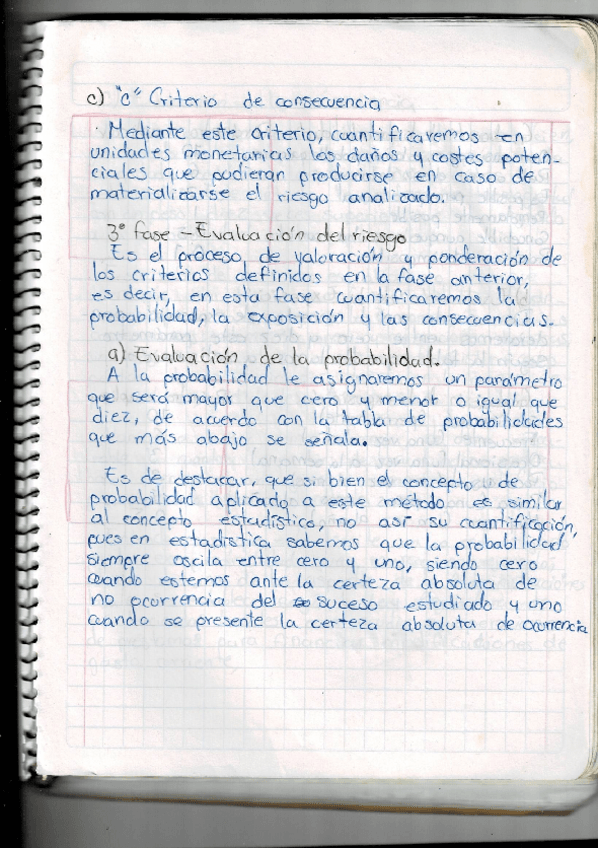 c) "C" Criterio de consecuencia
· Mediante este criterio, cuantificaremos en
unidades monetarias los daños y costes poten-
ciales que pudieran producirse en caso de
materializarse el riesgo analizado.
3° fase - Evaluación del riesgo
Es el proceso de valoración y ponderación de
los criterios definidos en la fase anterior,
es decir, en esta fase cuantificaremos la
probabilidad, la exposición y las consecuencias.
a) Evaluación de la probabilidad.
A la probabilidad le asignaremos un parámetro
que será mayor que cero y menor o igual que
diez, de acuerdo con la tabla de probabilidades
que más abajo se señala.
Es de destacar, que si bien el concepto de
probabilidad aplicado a este método es similar
al concepto estadístico, no así su cuantificación,
pues en estadística sabemos que la probabilidad
siempre oscila entre cero y uno, siendo cero
cuando estemos ante la certeza absoluta de
no ocurrencia del suceso estudiado y uno
cuando se presente la certeza absoluta de ocurrencia